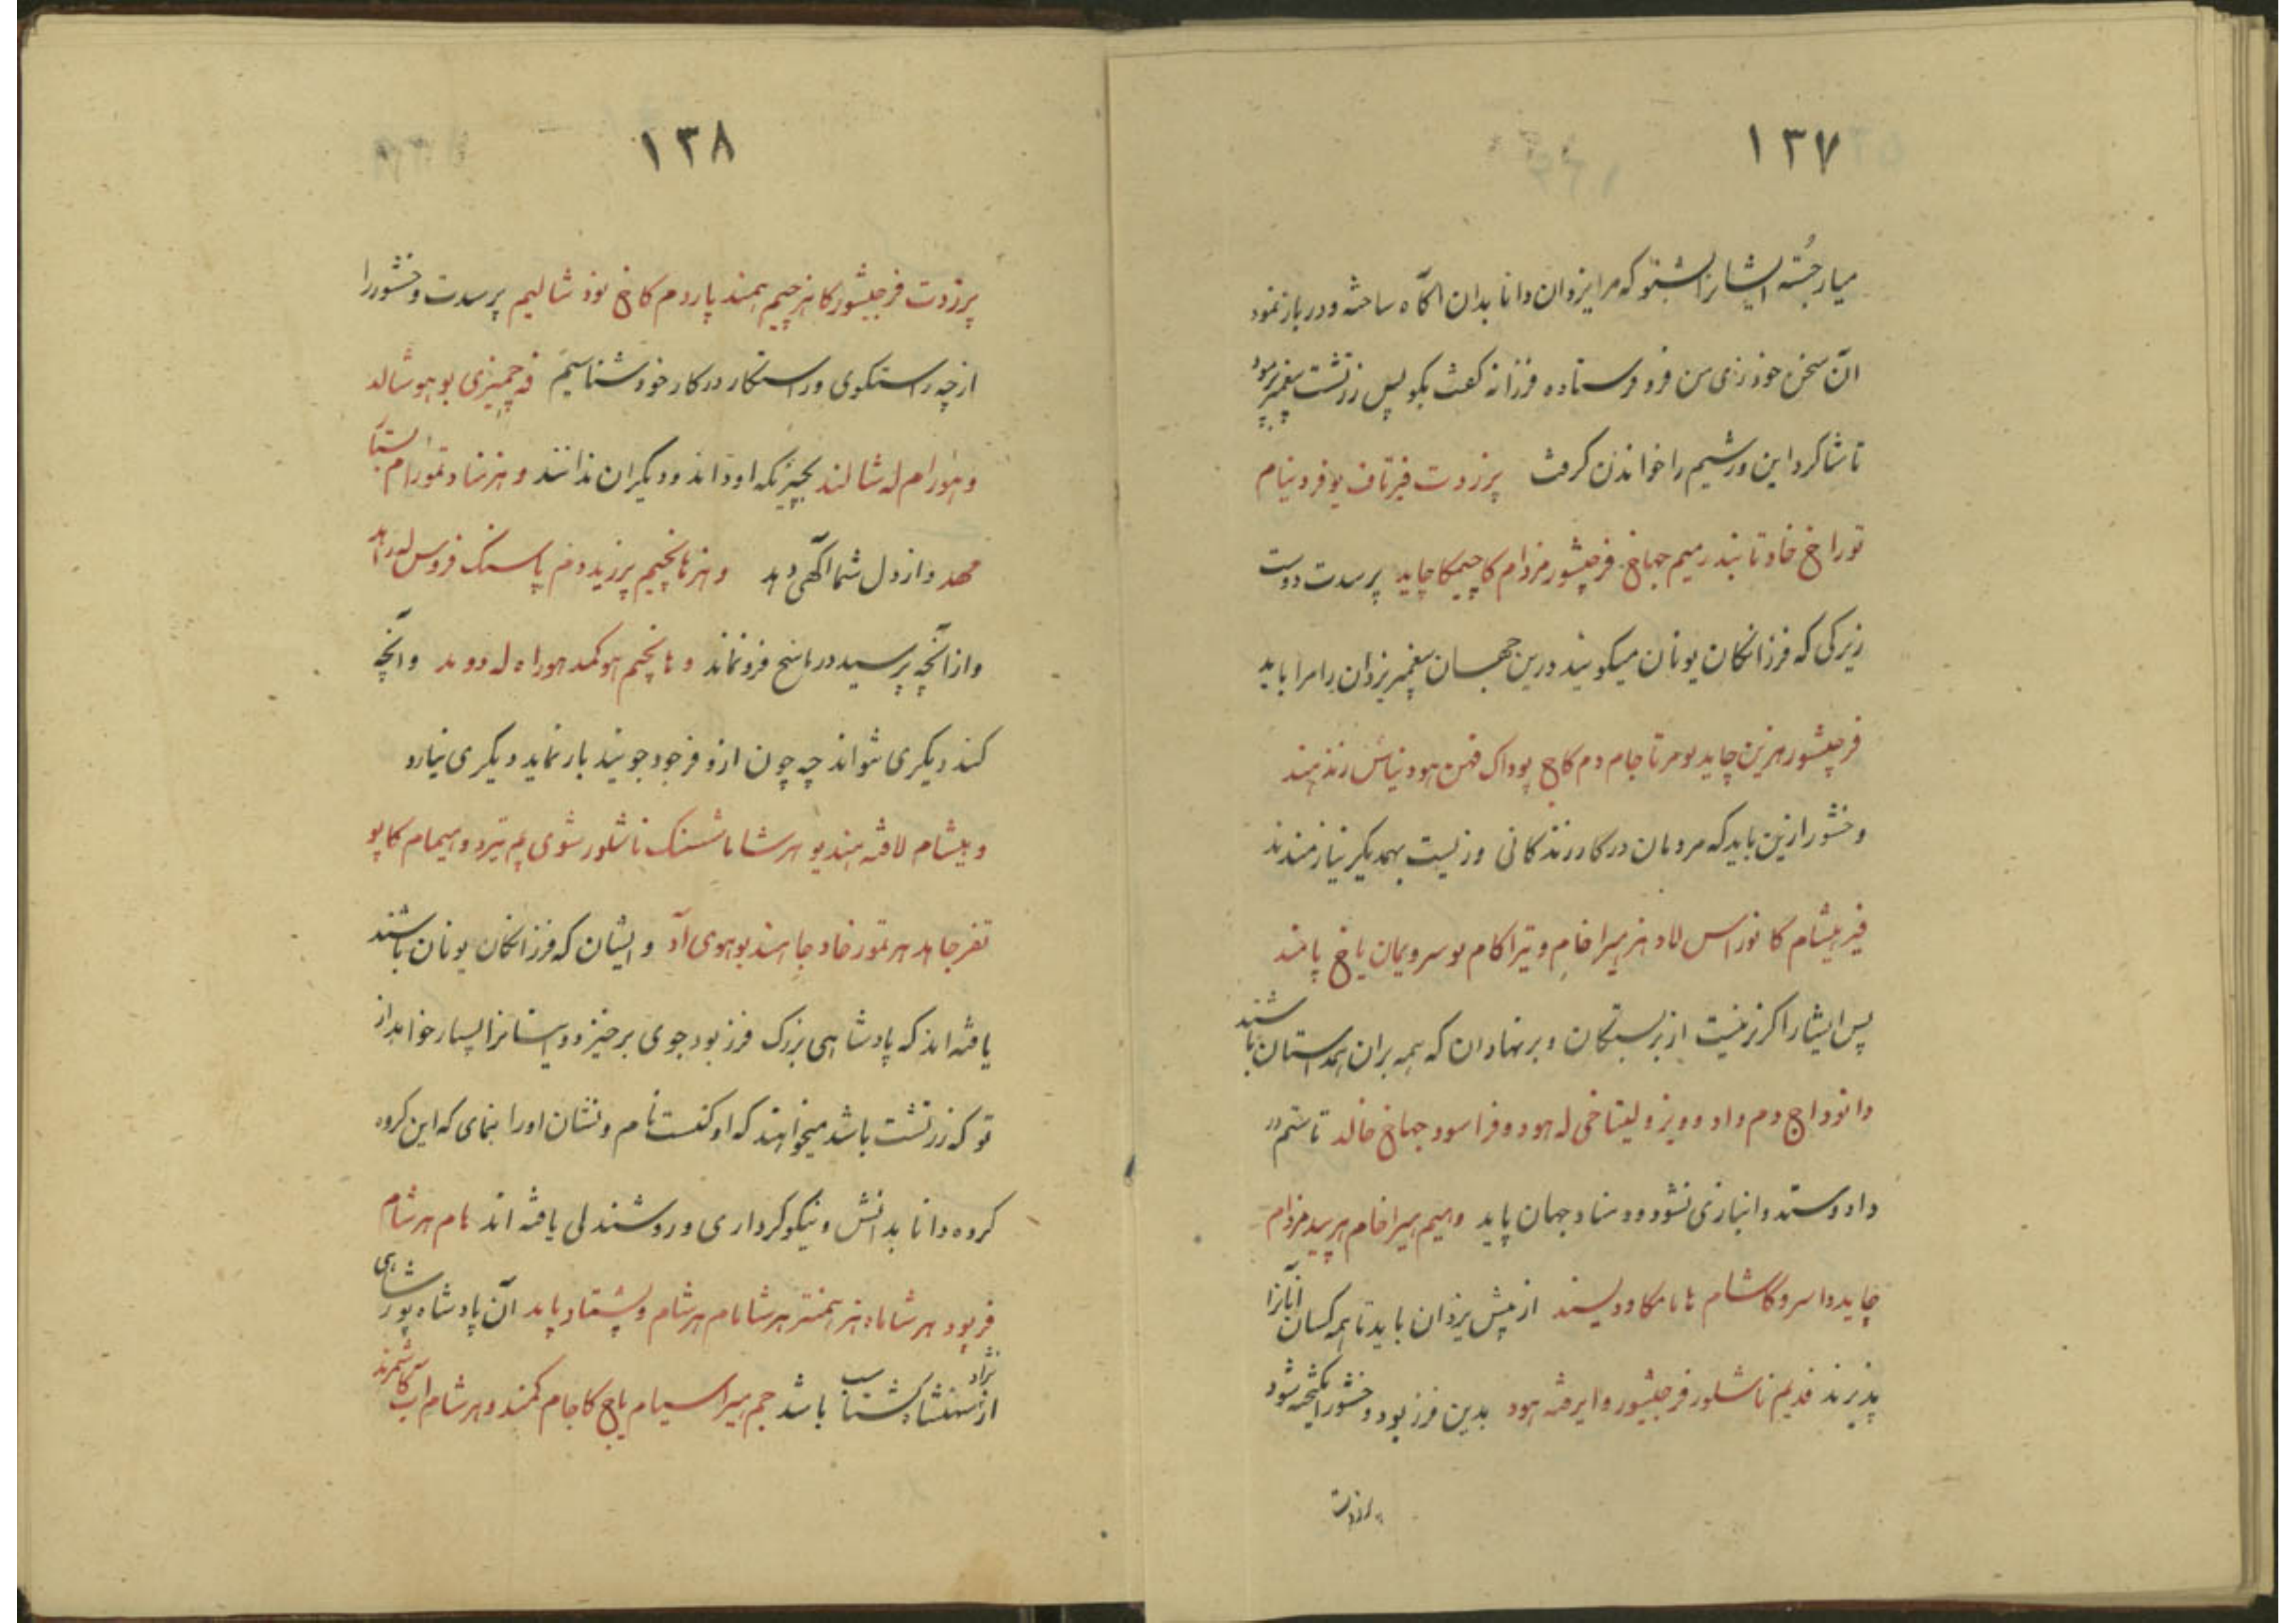 ۱۳۷
میار جُسته ایشانرا بشنو که مرا یزدان دانا بدان آگاه ساخته و در باز نمود
آن سخن خود زی من فرو فرستاده فرزانه گفت بگو پس زرتشت پیغمبر فرمود
تا شاکرد این ورشیم را خواندن گرفت پرزدت فیرتاف یو فرو نیام
توراخ خاد تا بند رمیم جهاخ فرجیشور مزدام کا چمیکا چاید پرسدت دوست
زیرکی که فرزانگان یونان میگویند درین جهان پیغمبر یزدان را مرا باید
فرجیشور هزین چاید لو مرتا جام دم کاج پوداک فهن هود نیاش زندهند
وخشور ازین باید که مردمان در کار زندگانی و زیست بهمدیگر نیازمندند
فیر هیشام کا نوراس لاد هنر میرا خام و تیرا کام لو سرویمان یاخ پامند
پس ایشانرا گزیر نیست از بربستگان و برنهادان که همه بران همداستان باشند
دا نوداج دم داد و ویز و لیتاخی له هود و فراسود جهاخ خالد تا ستم در
داد و ستد و انبازی نشود و نهاد جهان پاید وهیم هیرا خام هر بید مزدام
چاید دا سروگاشام هاما کا وولیند از پیش یزدان باید تا همه کسان آنرا
پذیرند فدیم ناشلور فرجیشور وایرفته هود بدین فرز بود وخشور انگیخته شود
پرزدت
۱۳۸
پرزدت فرجیشور کا هنر چیم همند پاردم کاخ نود شالیم پرسدت وخشور را
از چه راستگوی و راستکار در کار خود شناسیم فه چمیزی یو هو شالد
و هورام له شالند بچیزیکه او داند و دیگران ندانند و هنر شاد تمورام استا
مهد و از دل شما آگهی دهد و هنر هانچیم پرزید دم پاسنک فروس له راهد
و از آنچه پرسید در پاسخ فرو نماند و هانچیم هو کمد هوراه له دومد و آنچه
کند دیگری نتواند چه چون ازو فرجود جویند بار نماید دیگری نیارد
و هیشام لافته هند یو هر شاما شسنک ناشلور شوی یم تیرد و هیمام کا پو
تفر جاهد هر تمور خاد جا هند بو هوی آد و ایشان که فرزانگان یونان باشند
یافته اند که پادشاهی بزرگ فرز بود جوی برخیزد و ایشانرا بسیار خواهد از
تو که زرتشت باشد میخواهند که او کنست نام و نشان او را بنمای که این گروه
گروه دانا بدانش و نیکوکرداری و روشندلی یافته اند هام هرشام
فر بود هر شاماه هنر همنتر هر شامام هرشام و پشتاد پاید آن پادشاه پور شاهی
از نژاد شهنشاه گشتاسب باشد جم هیرا سیمام یاخ کا جام کمند و هرشام آب کاشمرند